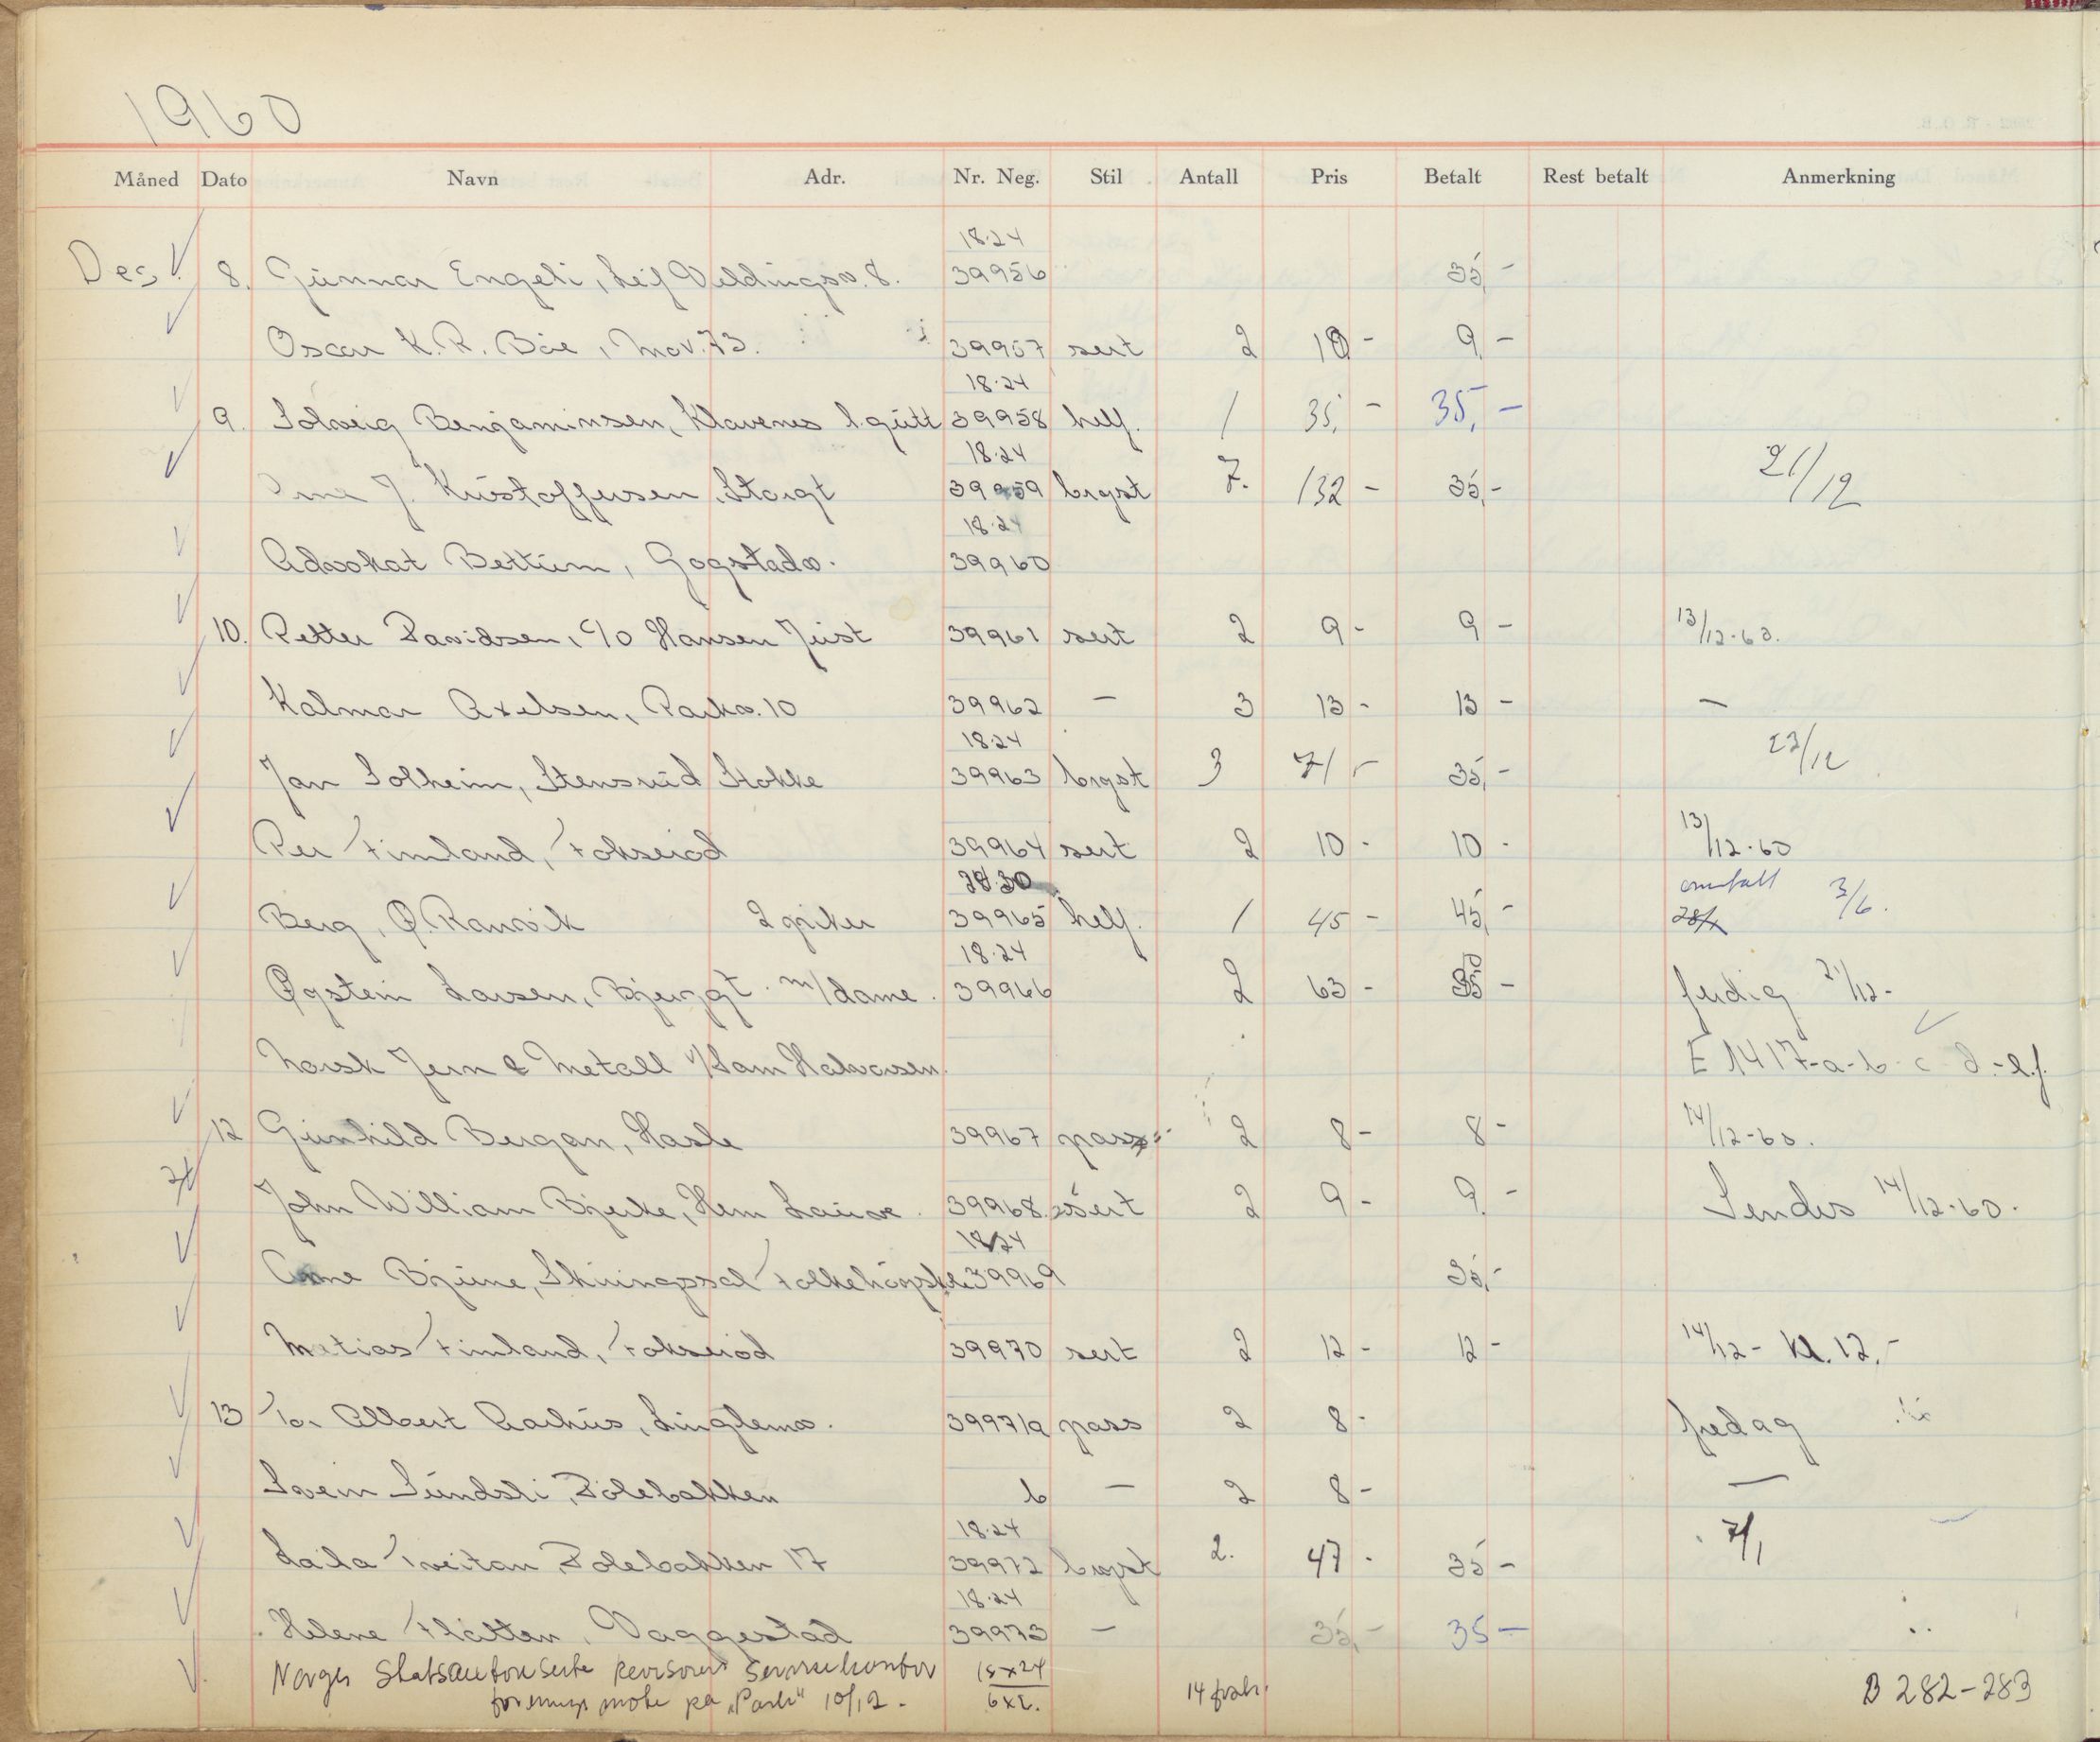 1960
Måned Dato Navn Adr. Nr. Neg. Stil Antall Pris Betalt Rest betalt Anmerkning
18.24
Des. 8. Gunnar Engeli, Leif Weldingsv. 8. 39956 35,-
Oscar K. R. Bøe, Mov. 73. 39957 sert 2 10 - 9,-
18.24
9. Solveig Benjaminsen, Klavenes l. gutt 39958 helf. 1 35,- 35,-
18.24
J. Kristoffersen, Storgt 39959 bryst 7. 132 - 35,- 21/12
18.24
Advokat Bettum, Gogstadv. 39960
10. Petter Davidsen, c/o Hansen Just 39961 sert 2 9 - 9 - 13/12-60.
Kalmar Axelsen, Parkv. 10 39962 — 3 13 - 13 - —
18.24
Jan Solheim, Stensrud Stokke 39963 bryst 3 71 - 35,- 23/12
Per Fimland, Fokserød 39964 sert 2 10 - 10 - 13/12-60
Berg, Ø. Ranvik 2 piker 39965 helf. 1 45 - 45,- 3/6.
18.24
Øystein Larsen, Bjerggt. m/dame. 39966 2 63 - 35 - ferdig 21/12-
Norsk Jern & Metall v/Sam Halvorsen. E 1417-a-b-c-d-e-f.
12 Gunhild Bergan, Hasle 39967 pass 2 8 - 8 - 14/12-60.
John William Bjerke, Hem Lauve. 39968 sert 2 9 - 9,- Sendes 14/12-60.
18.24
Anne Bjune, Skiringssal Folkehøyskole 39969 35,-
Matias Fimland, Fokserød 39970 sert 2 12 - 12 - 14/12 - Kl. 12,-
13 Tor Albert Aarhus, Linglemv. 39971a pass 2 8 - fredag
Svein Sundsli, Dølebakken b — 2 8 - —
18.24
Laila Tveitan, Dølebakken 17 39972 bryst 2. 47 - 35 - 7/1
18.24
Helene Flåtten, Vaggestad 39973 — 35,- 35 -
Norges Statsautoriserte revisorers Servicekontor 18x24
forenings møte på "Park" 10/12 - 6x6. 14 B 282-283